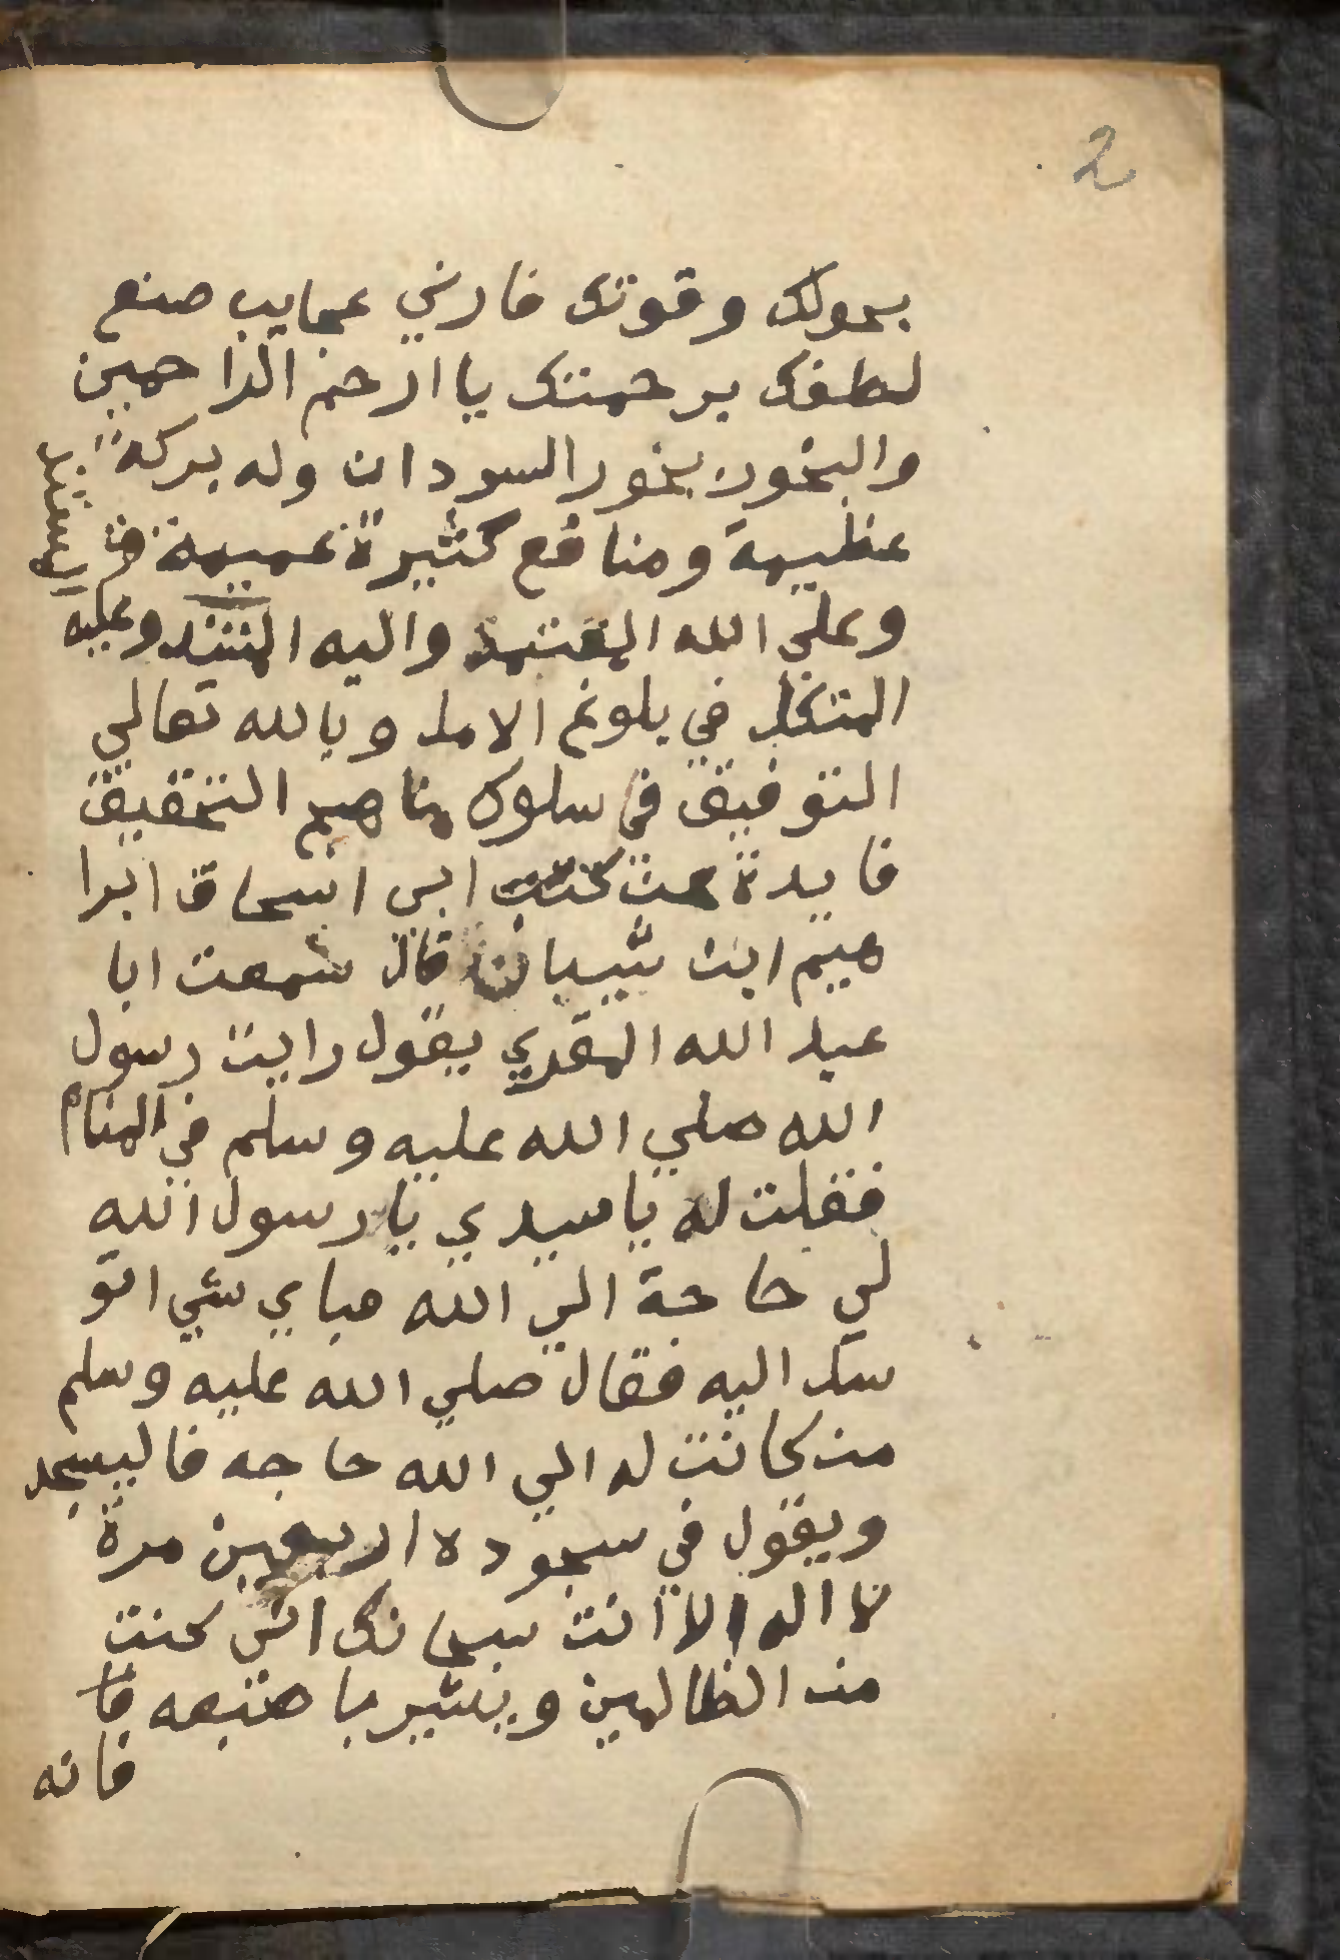 2
بحولك وقوتك فارني عجايب صنع
لطفك برحمتك يا ارحم الراحمين
والبخور بخور السودان وله بركة
عظيمة ومنافع كثيرة عميمة
وعلى الله المعتمد واليه المستند وعليه
المتكل في بلوغ الامل وبالله تعالي
التوفيق في سلوك مناهج التحقيق
فايدة عن كتب ابي اسحاق ابرا
هيم ابن شيبان قال سمعت ابا
عبد الله المقري يقول رايت رسول
الله صلي الله عليه وسلم في المنام
فقلت له يا سيدي يا رسول الله
لي حاجة الي الله فباي شي اتو
سل اليه فقال صلي الله عليه وسلم
من كانت له الي الله حاجه فاليسجد
ويقول في سجوده اربعين مرة
لا اله الا انت سبحانك اني كنت
من الظالمين ويشير باصبعه فا
فانه